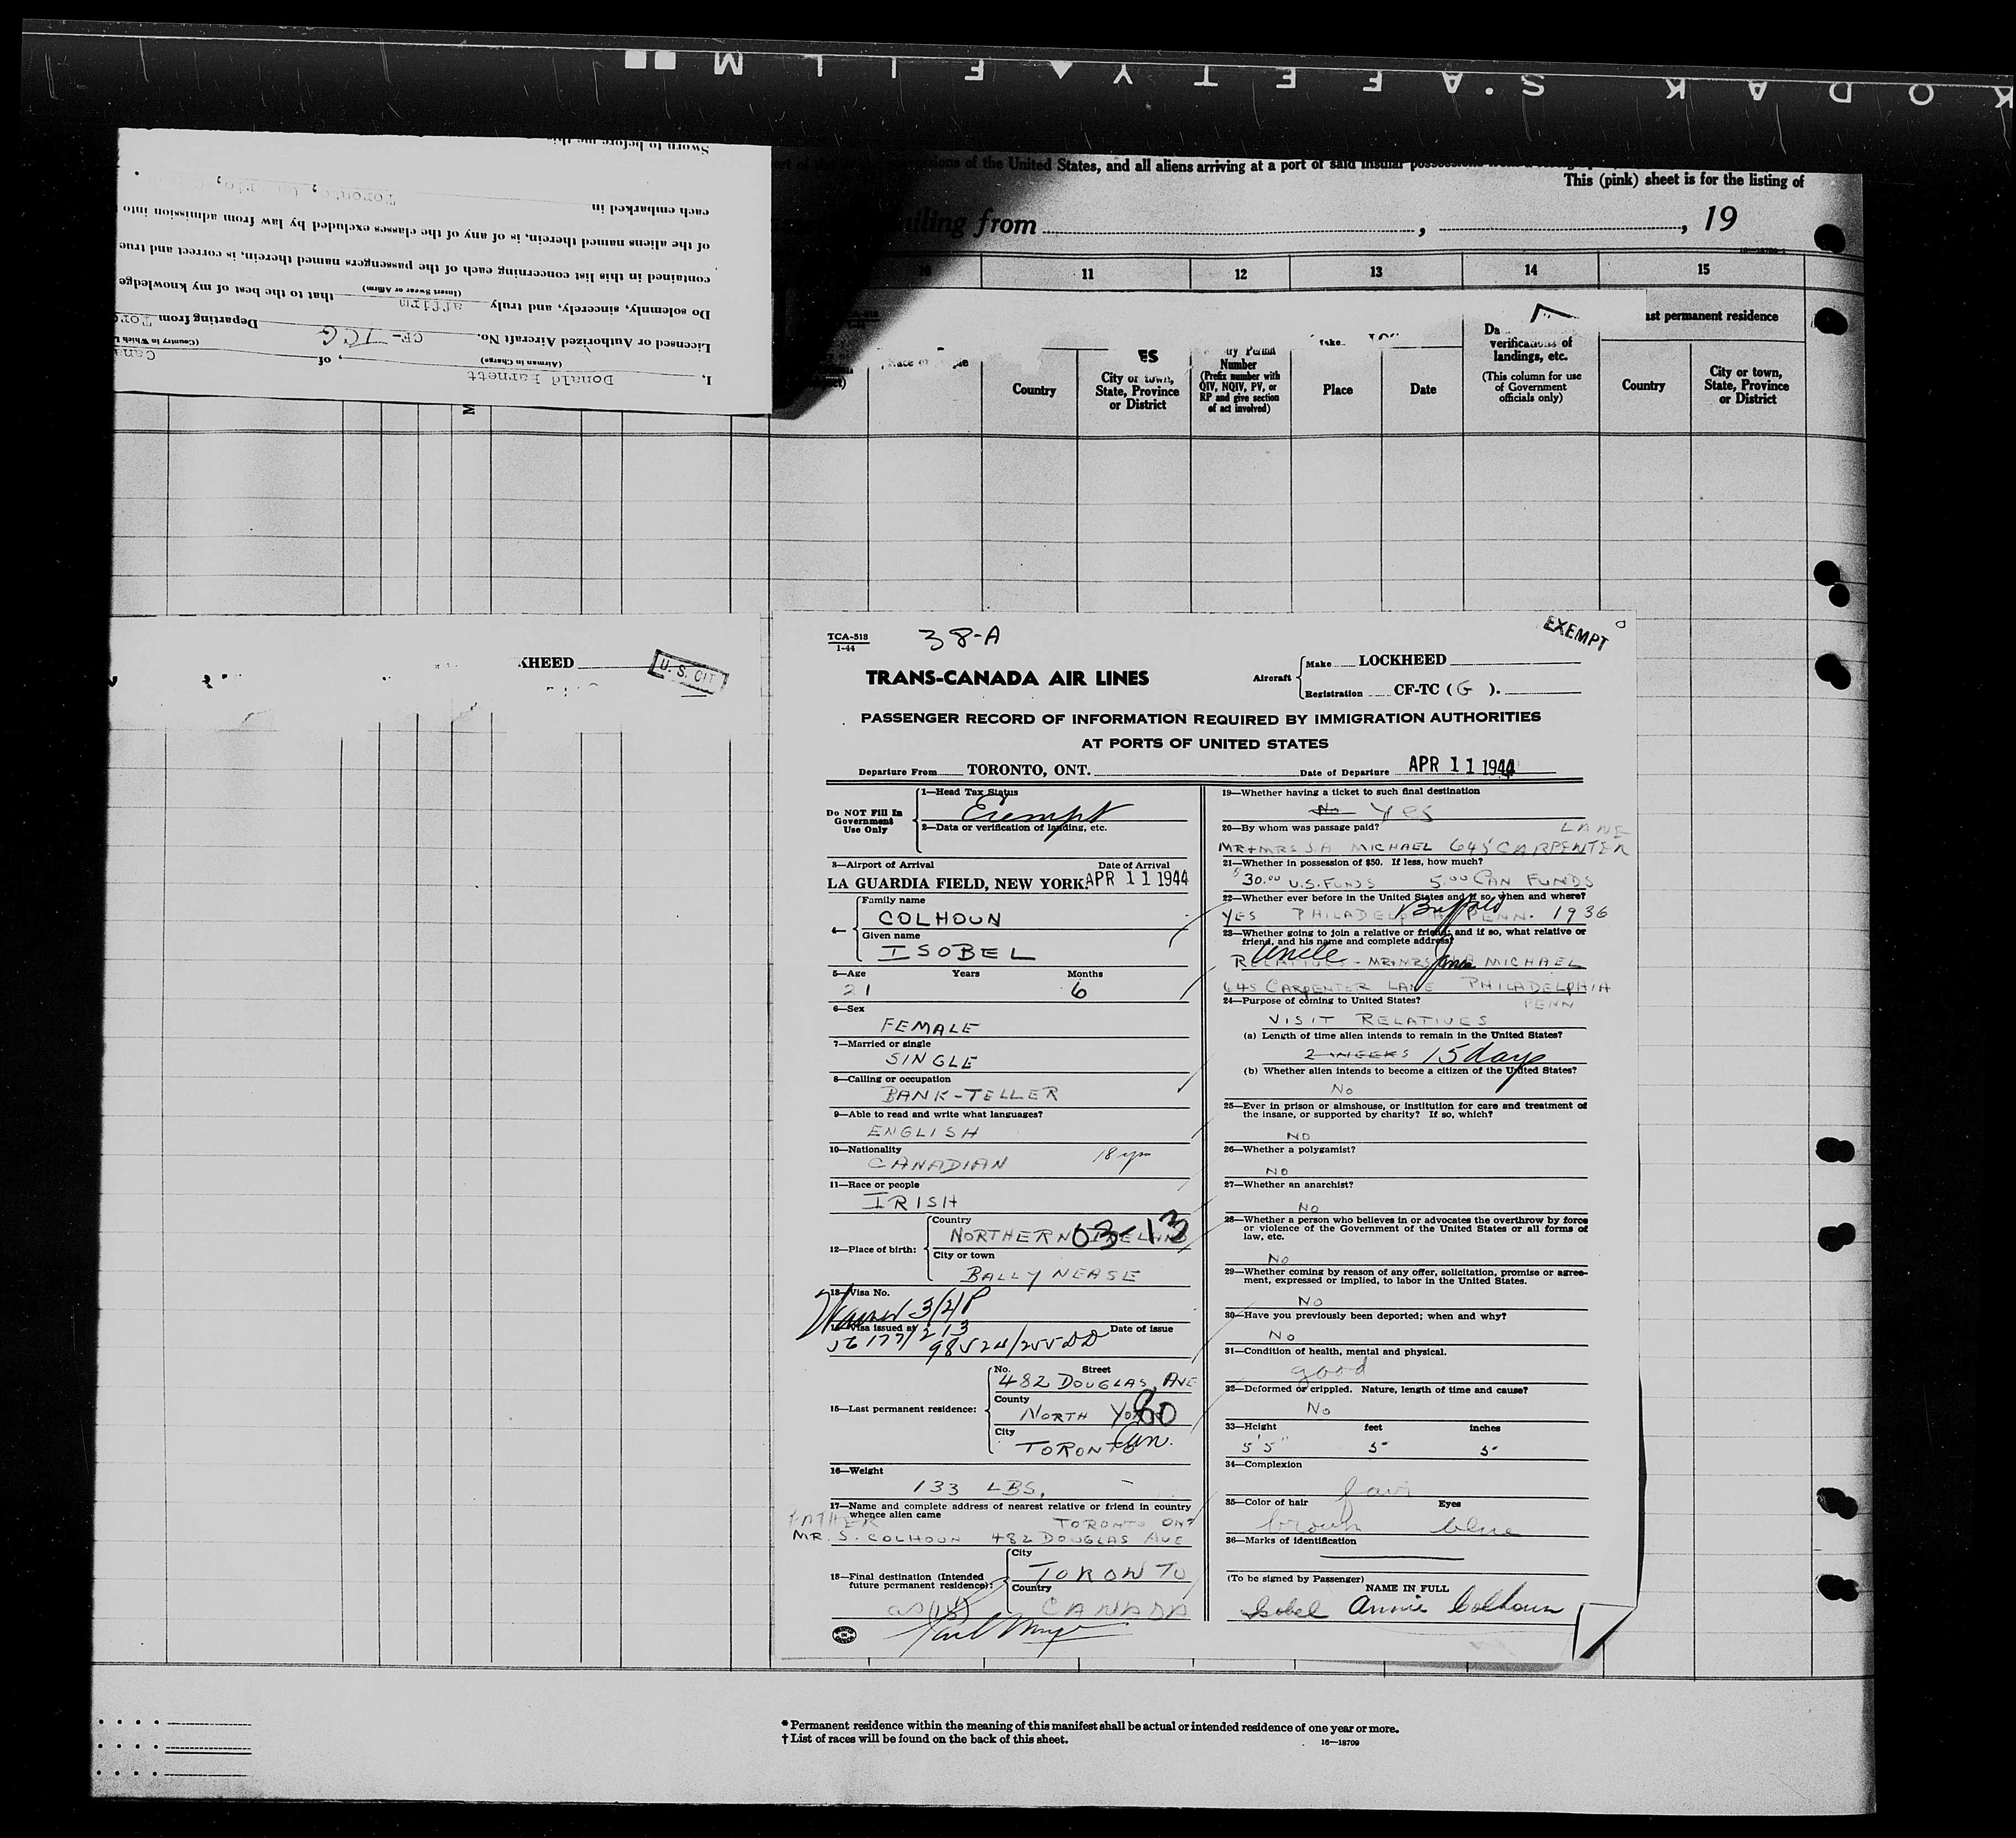 KODAK SAFETY FILM
of the United States, and all aliens arriving at a port of said insular
This (pink) sheet is for the listing of
ailing from , , 19
11 12 13 14 15
ast permanent residence
verifications of
landings, etc.
(This column for use
of Government
officials only)
Number
(Prefix number with
QIV, NQIV, PV, or
RP and give section
of act involved)
Country
City or town,
State, Province
or District
Place
Date
Country
City or town,
State, Province
or District
I, Donald Barnett, of Cana
(Airman in Charge) (Country in Which
Licensed or Authorized Aircraft No. CF-TCG Departing from Toro
Do solemnly, sincerely, and truly affirm that to the best of my knowledge
(Insert Swear or Affirm)
contained in this list concerning each of the passengers named therein, is correct and true
of the aliens named therein, is of any of the classes excluded by law from admission into
each embarked in Toronto,
Sworn to before me this
KHEED
U. S. CIT
TCA-518
1-44
38-A
EXEMPT
TRANS-CANADA AIR LINES
Aircraft
Make LOCKHEED
Registration CF-TC ( G ).
PASSENGER RECORD OF INFORMATION REQUIRED BY IMMIGRATION AUTHORITIES
AT PORTS OF UNITED STATES
Departure From TORONTO, ONT. Date of Departure APR 11 1944
Do NOT Fill In
Government
Use Only
1—Head Tax Status
Exempt
2—Data or verification of landing, etc.
3—Airport of Arrival Date of Arrival
LA GUARDIA FIELD, NEW YORK APR 11 1944
4—
Family name
COLHOUN
Given name
ISOBEL
5—Age Years Months
21 6
6—Sex
FEMALE
7—Married or single
SINGLE
8—Calling or occupation
BANK-TELLER
9—Able to read and write what languages?
ENGLISH
10—Nationality
CANADIAN 18 yrs
11—Race or people
IRISH
12—Place of birth:
Country
NORTHERN IRELAND 03-13
City or town
BALLYNEASE
13—Visa No.
3/21P
14—Visa issued at Date of issue
15—Last permanent residence:
No. Street
482 DOUGLAS AVE
County
NORTH YORK 80
City
TORONTO Can.
16—Weight
133 LBS.
17—Name and complete address of nearest relative or friend in country
whence alien came
FATHER TORONTO ONT
MR. S. COLHOUN 482 DOUGLAS AVE
18—Final destination (Intended
future permanent residence):
City
TORONTO
Country
CANADA
as (15)
19—Whether having a ticket to such final destination
No Yes
20—By whom was passage paid?
LANE
MR+MRS J.A MICHAEL 645 CARPENTER
21—Whether in possession of $50. If less, how much?
$30.00 U.S. FUNDS 5.00 CAN FUNDS
22—Whether ever before in the United States and if so, when and where?
YES PHILADELPHIA PENN. 1936 Buffalo
23—Whether going to join a relative or friend; and if so, what relative or
friend, and his name and complete address?
Uncle
RELATIVES - MR+MRS MICHAEL
645 CARPENTER LANE PHILADELPHIA
PENN
24—Purpose of coming to United States?
VISIT RELATIVES
(a) Length of time alien intends to remain in the United States?
2 WEEKS 15 days
(b) Whether alien intends to become a citizen of the United States?
No
25—Ever in prison or almshouse, or institution for care and treatment of
the insane, or supported by charity? If so, which?
NO
26—Whether a polygamist?
NO
27—Whether an anarchist?
NO
28—Whether a person who believes in or advocates the overthrow by force
or violence of the Government of the United States or all forms of
law, etc.
No
29—Whether coming by reason of any offer, solicitation, promise or agree-
ment, expressed or implied, to labor in the United States.
No
30—Have you previously been deported; when and why?
No
31—Condition of health, mental and physical.
good
32—Deformed or crippled. Nature, length of time and cause?
No
33—Height feet inches
5'5" 5 5
34—Complexion
fair
35—Color of hair Eyes
brown blue
36—Marks of identification
(To be signed by Passenger)
NAME IN FULL
Isobel Annie Colhoun
* Permanent residence within the meaning of this manifest shall be actual or intended residence of one year or more.
† List of races will be found on the back of this sheet.
16—18709